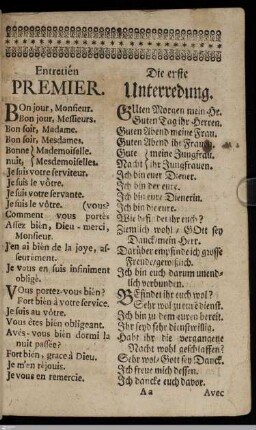 Entretién
PREMIER.
BOn jour, Monsieur.
Bon jour, Messieurs.
Bon soir, Madame.
Bon soir, Mesdames.
Bonne { Mademoiselle.
nuit, { Mesdemoiselles.
Je suis votre serviteur.
Je suis le vôtre.
Je suis votre servante.
Je suis le vôtre. (vous?
Comment vous portés
Assez bien, Dieu-merci,
Monsieur.
J'en ai bien de la joye, as-
seurément.
Je vous en suis infiniment
obligé.
VOus portez-vous bien?
Fort bien à votre service.
Je suis au vôtre.
Vous êtes bien obligeant.
Avés-vous bien dormi la
nuit passée?
Fort bien, grace à Dieu.
Je m'en réjouis.
Je vous en remercie.
Die erste
Unterredung.
GUten Morgen mein Hr.
Guten Tag ihr Herren.
Guten Abend meine Frau.
Guten Abend ihr Frauen.
Gute { meine Jungfrau.
Nacht { ihr Jungfrauen.
Ich bin euer Diener.
Ich bin der eure.
Ich bin eure Dienerin.
Ich bin die eure.
Wie befindet ihr euch?
Ziemlich wohl, GOtt sey
Danck mein Herr.
Darüber empfinde ich grosse
Freude gewißlich.
Ich bin euch darum unend-
lich verbunden.
BEfindet ihr euch wol?
Sehr wol zu eurē dienst.
Ich bin zu dem euren bereit.
Ihr seyd sehr dienstwillig.
Habt ihr die vergangene
Nacht wohl geschlaffen?
Sehr wol, Gott sey Danck.
Ich freue mich dessen.
Ich dancke euch davor.
Aa
Avec